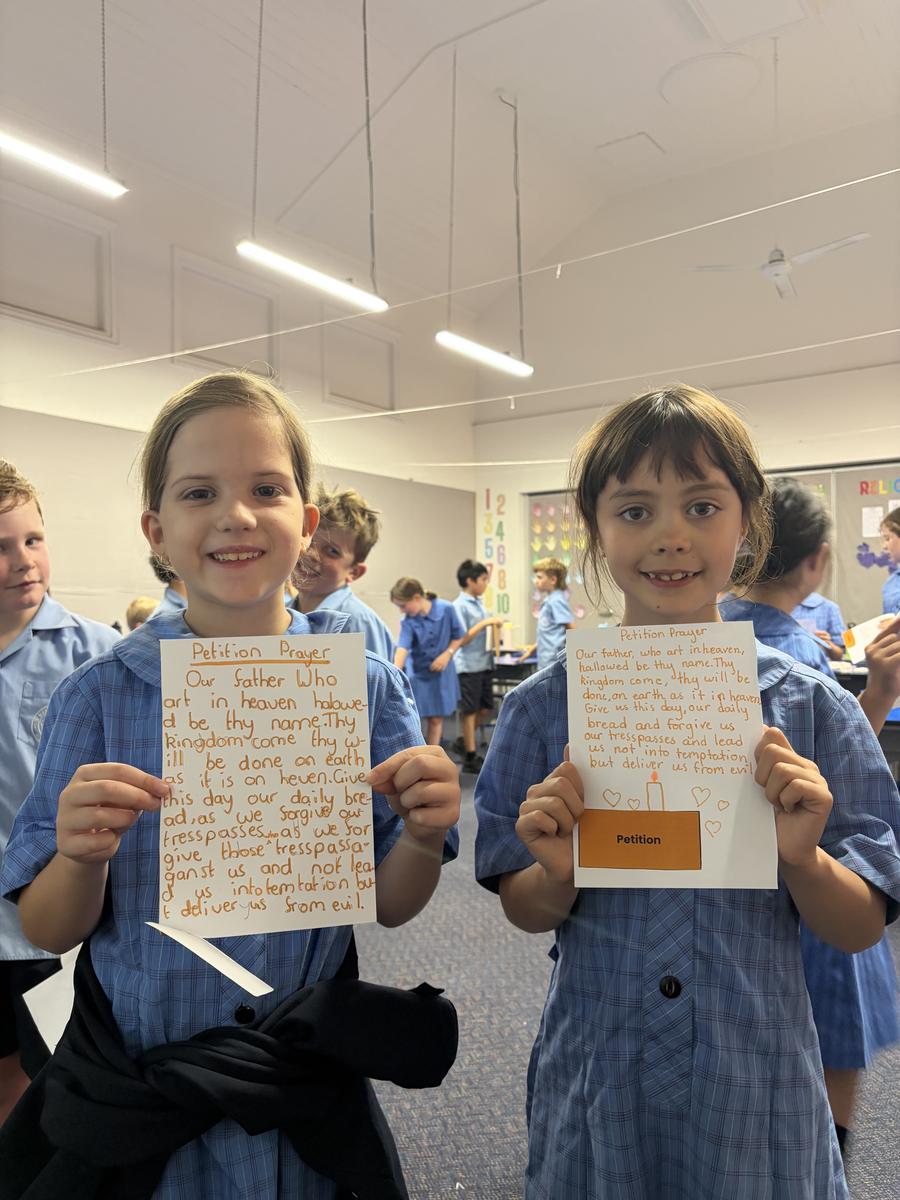 Petition Prayer
Our father Who
art in heaven halowe-
d be thy name.Thy
kingdom come thy w-
ill be done on earth
as it is on heven.Give
this day our daily bre-
ad,as we forgive our
tresspasses as we for
give those who tresspassa-
ganst us and not lea
d us into temtation bu
t deliver us from evil.
Petition Prayer
Our father, who art in heaven,
hallowed be thy name. Thy
kingdom come, thy will be
done, on earth as it in heaven
Give us this day, our daily
bread and forgive us
our tresspasses and lead
us not into temptation
but deliver us from evil
Petition
1 2
3 4
5 6
7 8
9 10
RELIG